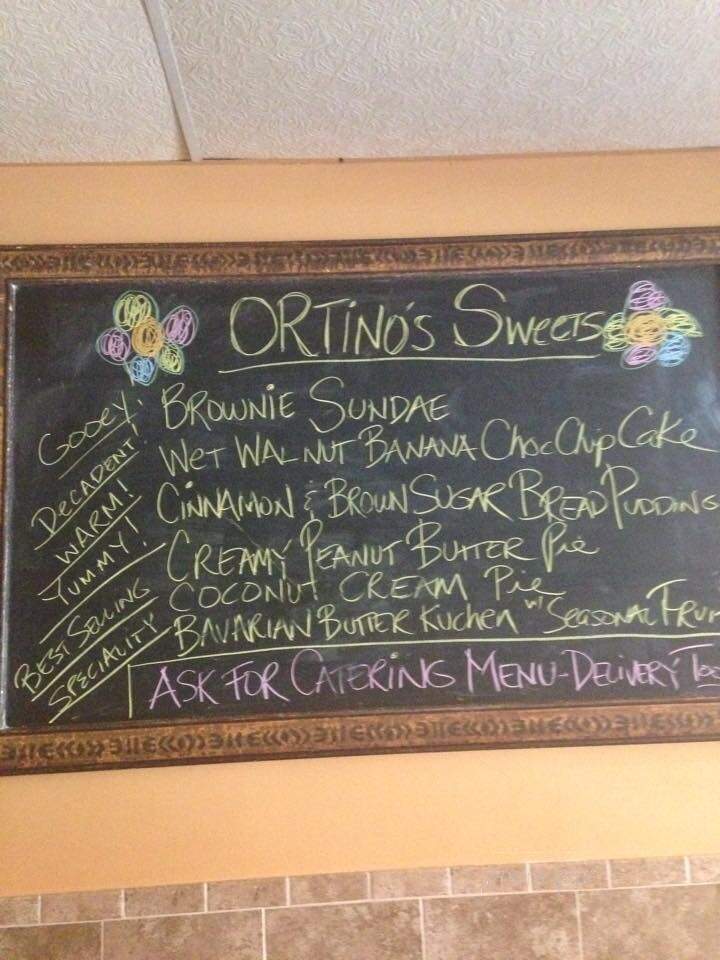 ORTINO'S SWEETS
GOOEY! BROWNIE SUNDAE
DECADENT! WET WALNUT BANANA Choc Chip Cake
WARM! CINNAMON & BROWN SUGAR BREAD PUDDING
YUMMY! CREAMY PEANUT BUTTER Pie
BEST SELLING COCONUT CREAM Pie
SPECIALITY BAVARIAN BUTTER Kuchen w/ Seasonal
ASK FOR CATERING MENU-DELIVERY